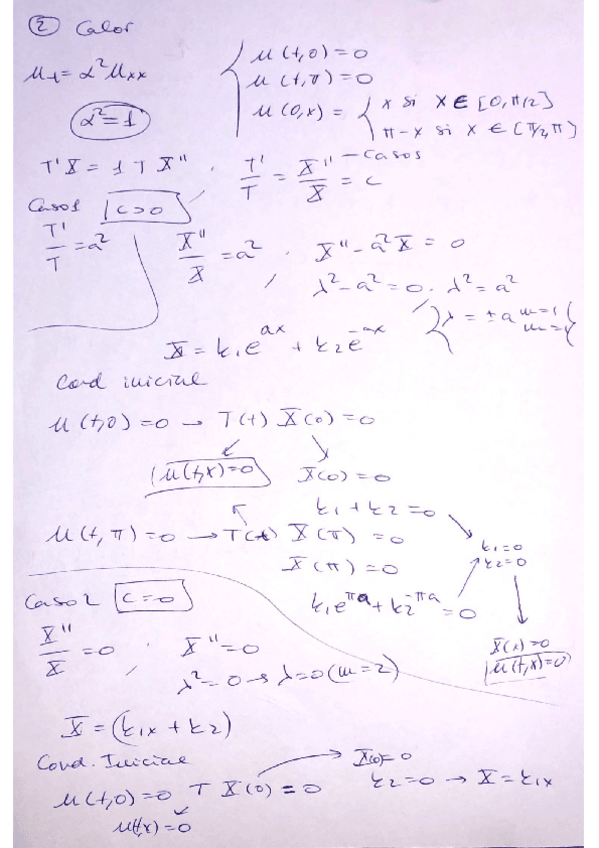 ② Calor
u_t = α² u_xx
α² = 1
{ u(t,0) = 0
u(t,π) = 0
u(0,x) = { x si x ∈ [0, π/2]
π-x si x ∈ [π/2, π]
T'X = 1 T X'' . T'/T = X''/X = c — casos
Caso 1 c>0
T'/T = a² X''/X = a² . X'' - a²X = 0
λ² - a² = 0 . λ² = a²
λ = ±a m=1 m=1
X = k₁e^{ax} + k₂e^{-ax}
Cond inicial
u(t,0) = 0 → T(t) X(0) = 0
u(t,x) = 0 X(0) = 0
k₁ + k₂ = 0
u(t,π) = 0 → T(t) X(π) = 0
X(π) = 0
k₁e^{πa} + k₂^{-πa} = 0
k₁ = 0
k₂ = 0
X(x) = 0
u(t,x) = 0
Caso 2 c=0
X''/X = 0 . X'' = 0
λ² = 0 → λ = 0 (m=2)
X = (k₁x + k₂)
Cond. Inicial
u(t,0) = 0 T X(0) = 0
X(0) = 0
k₂ = 0 → X = k₁x
u(t,x) = 0